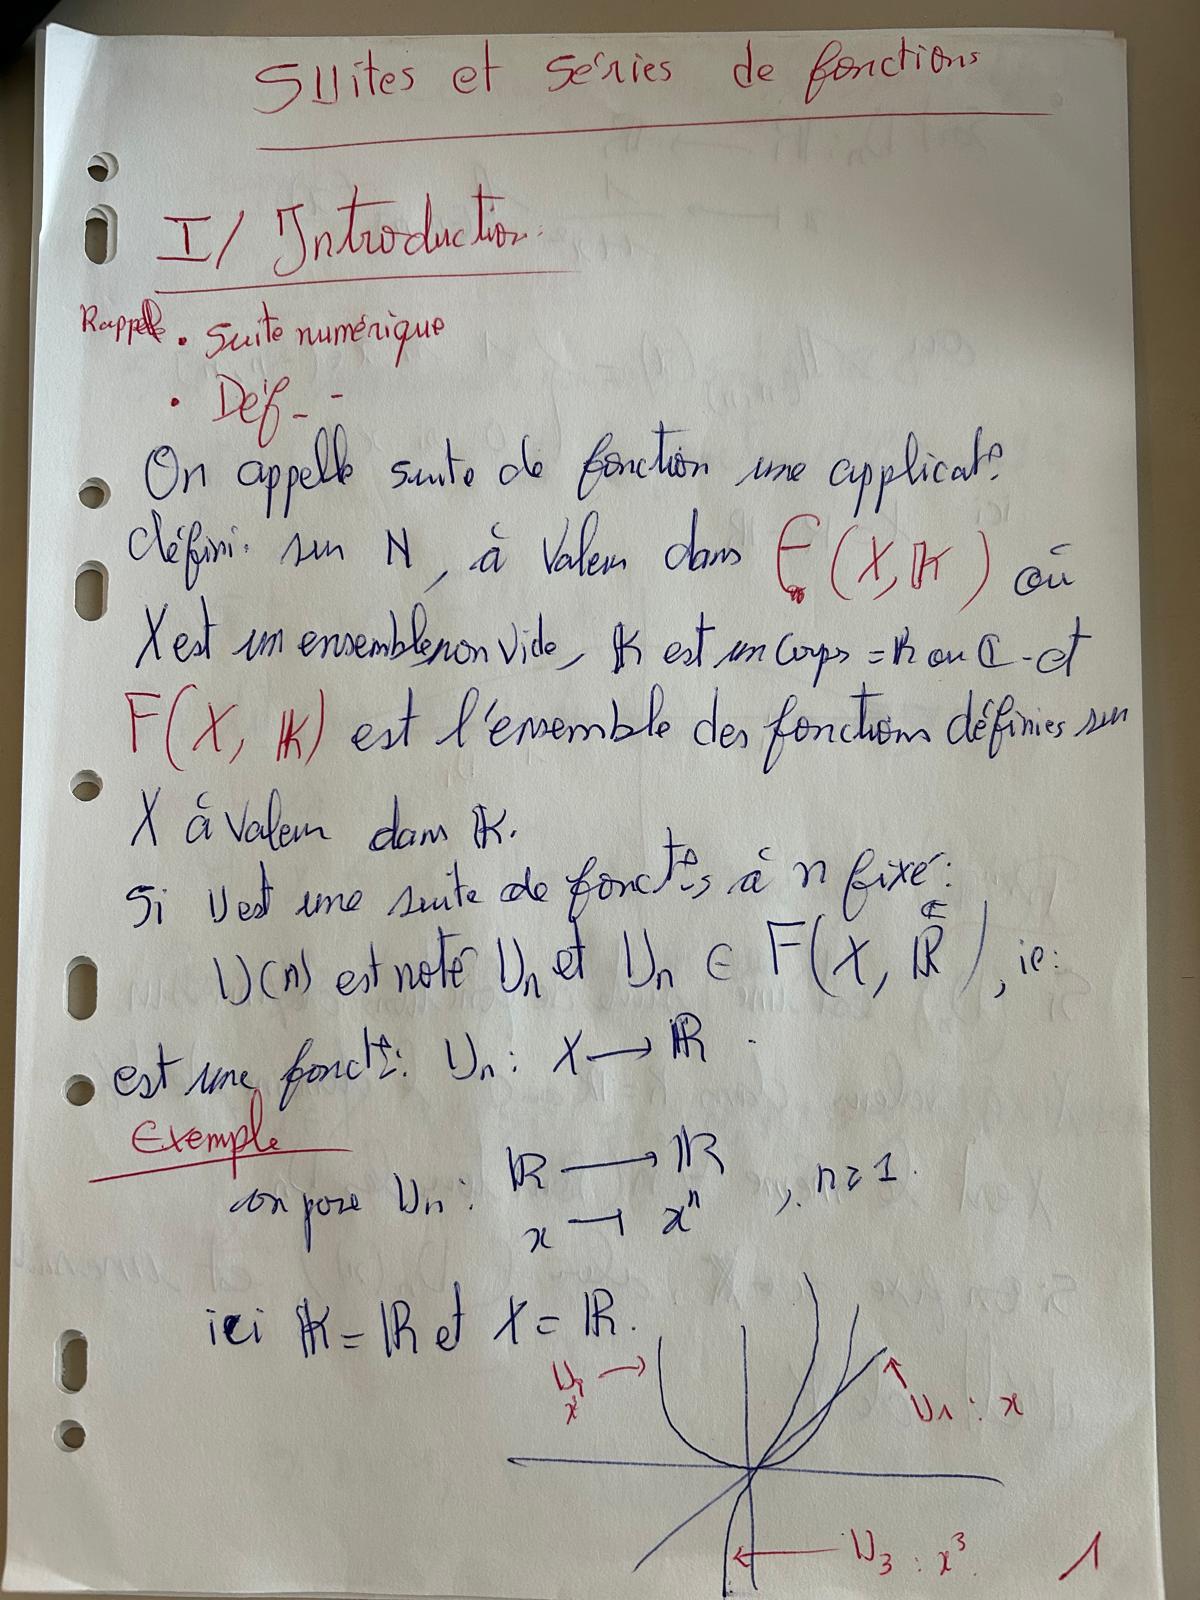 Suites et séries de fonctions
I/ Introduction.
Rappel • Suite numérique
• Déf - -
On appelle suite de fonction une applicat°
défini sur N, à valeur dans F(X, K) où
X est un ensemble non vide, K est un corps = R ou C - et
F(X, K) est l'ensemble des fonctions définies sur
X à valeur dans K.
Si U est une suite de fonct°s à n fixé:
U(n) est noté Un et Un ∈ F(X, R), ie:
est une fonct°: Un : X → R.
Exemple
on pose Un : R → R , n ≥ 1.
x → xⁿ
ici K = R et X = R.
U2 →
x²
U1 : x
U3 : x³
1